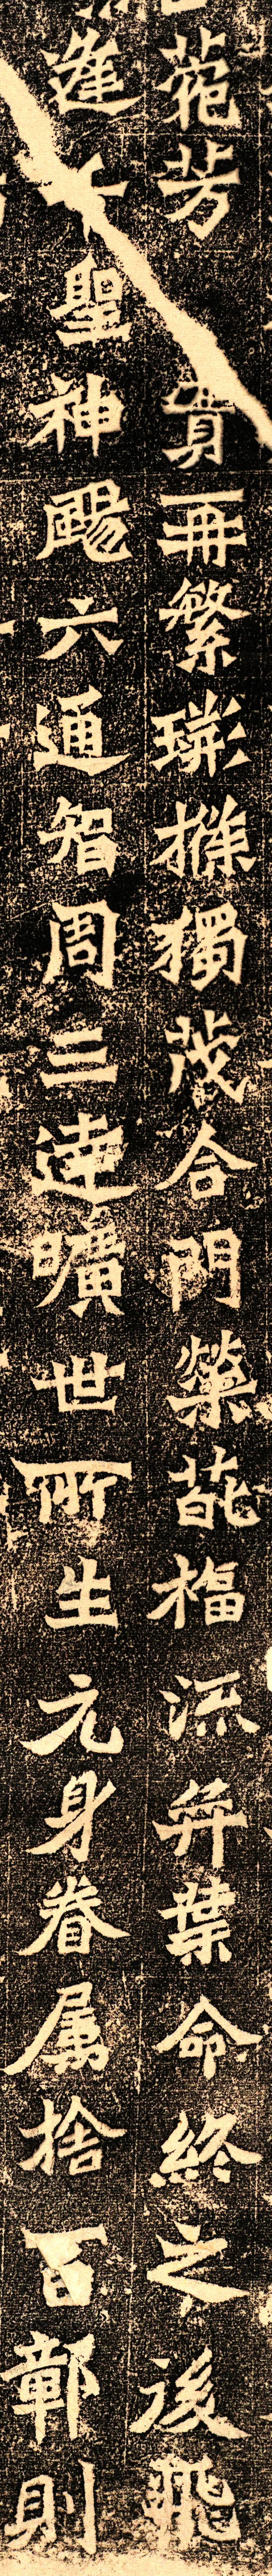 苑芳實再繁荊條獨茂合門榮葩福流弈葉命終之後飛
逢千聖神颺六通智周三達曠世所生元身眷属捨百鄣則